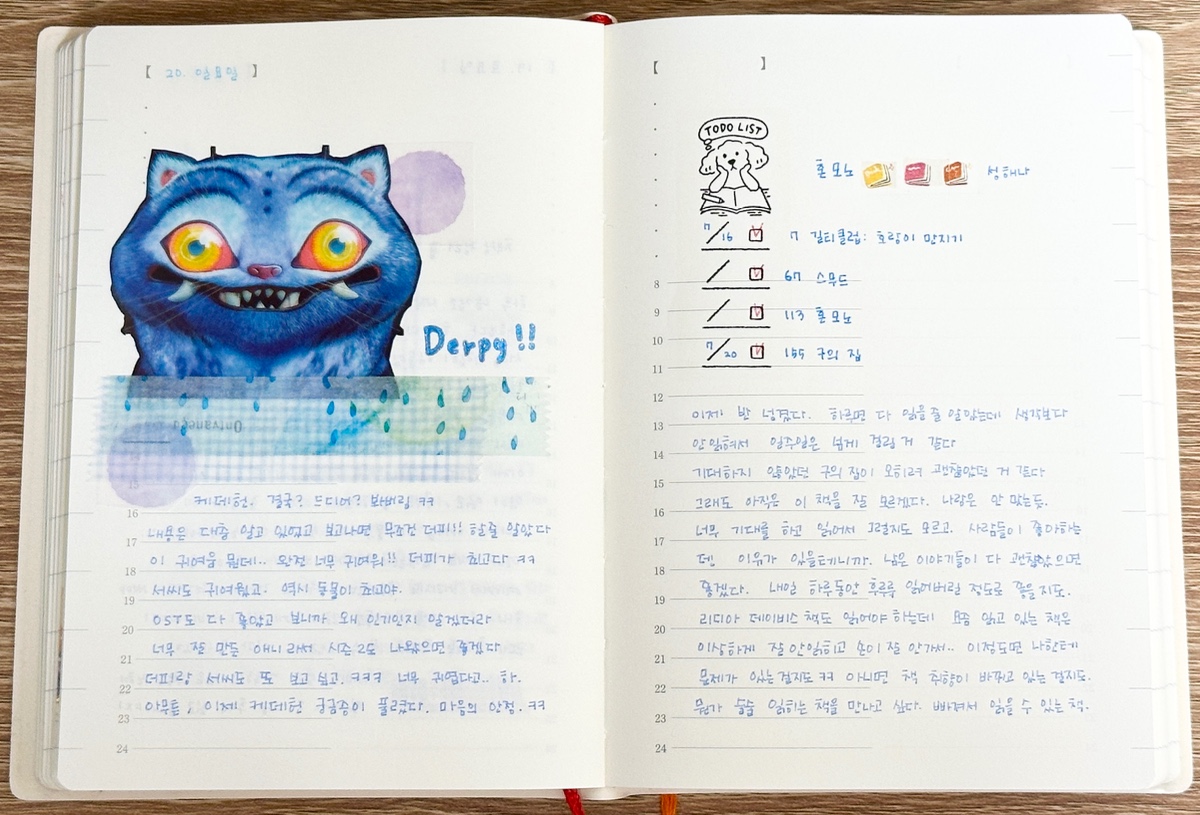 【 20. 일요일 】
Derpy!!
케데헌. 결국? 드디어? 봐버림 ㅋㅋ
내용은 대충 알고 있었고 보고나면 무조건 더피!! 할줄 알았다
이 귀여움 뭔데.. 완전 너무 귀여워!! 더피가 최고다 ㅋㅋ
서씨도 귀여웠고. 역시 동물이 최고야.
OST도 다 좋았고 보니까 왜 인기인지 알겠더라
너무 잘 만든 애니라서 시즌2도 나왔으면 좋겠다
더피랑 서씨도 또 보고 싶고. ㅋㅋㅋ 너무 귀엽다고.. 하.
아무튼, 이제 케데헌 궁금증이 풀렸다. 마음의 안정. ㅋㅋ
15
16
17
18
19
20
21
22
23
24
【 】
TODO LIST
혼모노 성해나
7/16 7 길티클럽: 호랑이 만지기
/ 67 스무드
/ 113 혼모노
7/20 155 구의 집
이제 반 넘겼다. 하루면 다 읽을 줄 알았는데 생각보다
안읽혀서 일주일은 넘게 걸릴 거 같다
기대하지 않았던 구의 집이 오히려 괜찮았던 거 같다
그래도 아직은 이 책을 잘 모르겠다. 나랑은 안 맞는듯.
너무 기대를 하고 읽어서 그럴지도 모르고. 사람들이 좋아하는
덴. 이유가 있을테니까. 남은 이야기들이 다 괜찮았으면
좋겠다. 내일 하루동안 후루룩 읽어버릴 정도로 좋을지도.
리디아 데이비스 책도 읽어야 하는데 요즘 읽고 있는 책은
이상하게 잘 안읽히고 손이 잘 안가서.. 이정도면 나한테
문제가 있는걸지도 ㅋㅋ 아니면 책 취향이 바뀌고 있는걸지도.
뭔가 술술 읽히는 책을 만나고 싶다. 빠져서 읽을 수 있는 책.
8
9
10
11
12
13
14
15
16
17
18
19
20
21
22
23
24